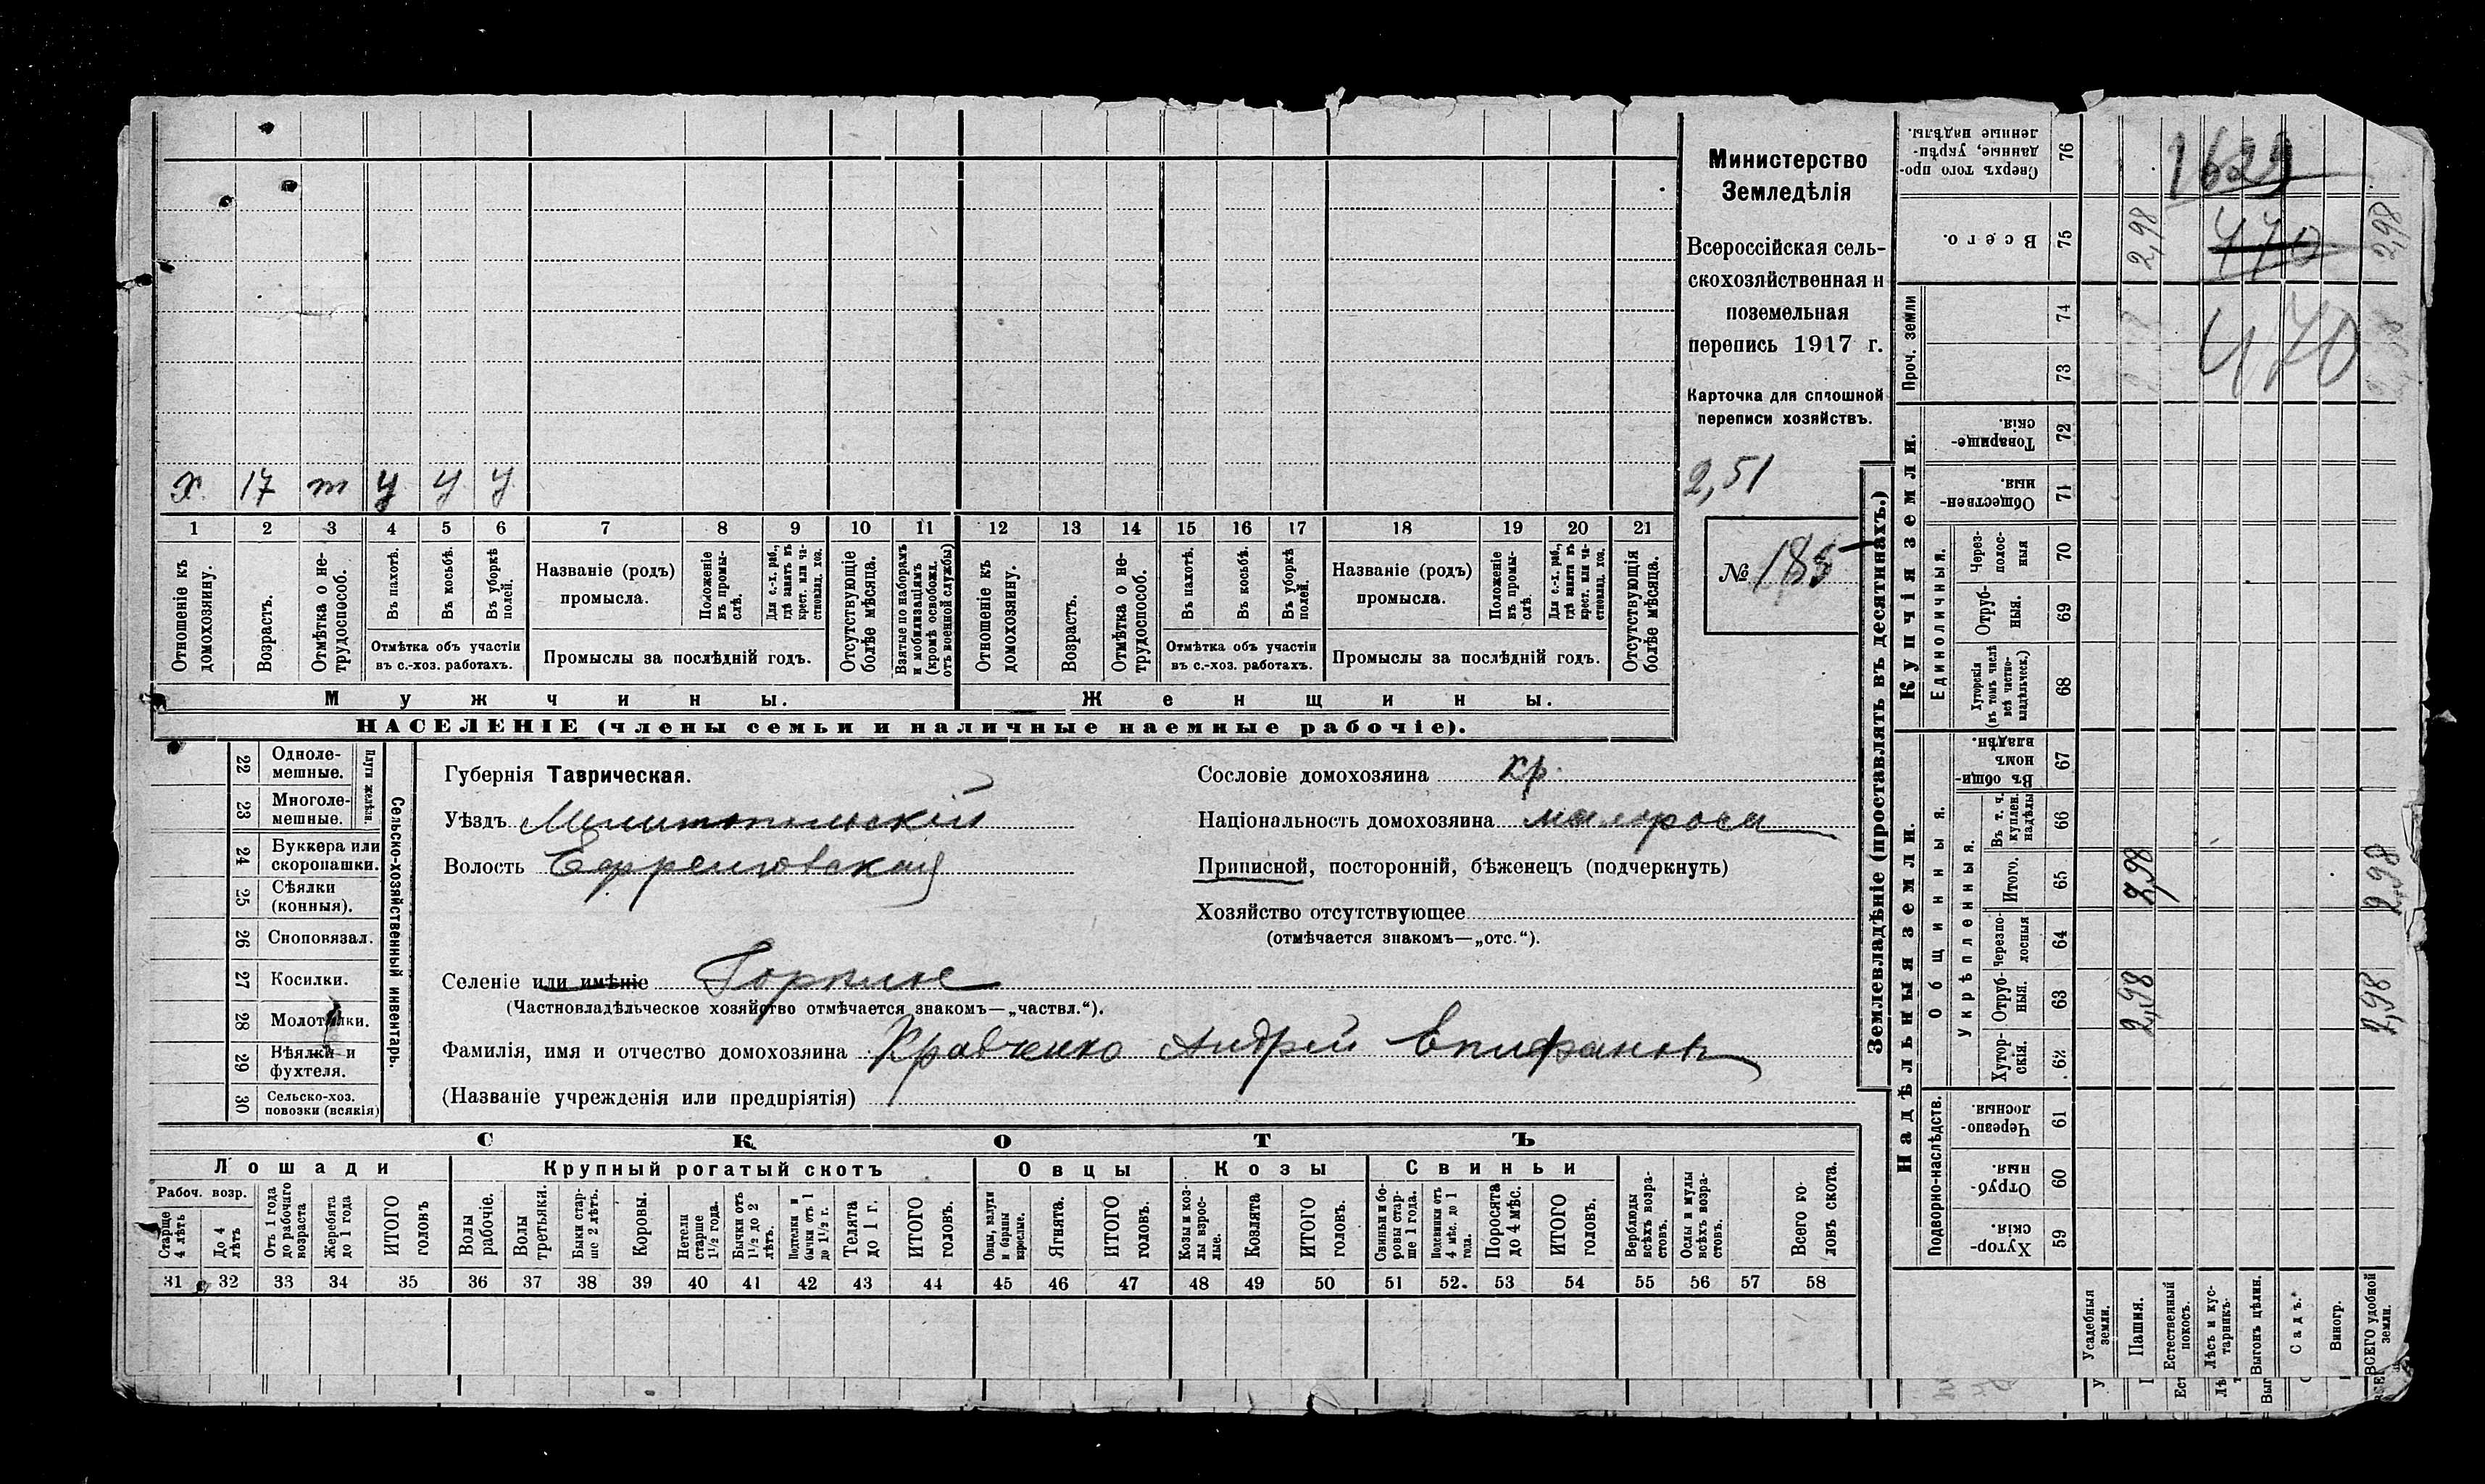 х. 17 т у у у
1 2 3 4 5 6 7 8 9 10 11 12 13 14 15 16 17 18 19 20 21
Отношеніе къ домохозяину.
Возрастъ.
Отмѣтка о не-трудоспособ.
Въ пахотѣ.
Въ косьбѣ.
Въ уборкѣ полей.
Отмѣтка объ участіи
въ с.-хоз. работахъ.
Названіе (родъ)
промысла.
Положеніе въ промы-слѣ.
Для с.-х. раб., гдѣ занятъ въ крест. или ча-стновлад. хоз.
Промыслы за послѣдній годъ.
Отсутствующіе болѣе мѣсяца.
Взятые по наборамъ и мобилизаціямъ (кромѣ освобожд. отъ военной службы)
Отношеніе къ домохозяину.
Возрастъ.
Отмѣтка о не-трудоспособ.
Въ пахотѣ.
Въ косьбѣ.
Въ уборкѣ полей.
Отмѣтка объ участіи
въ с.-хоз. работахъ.
Названіе (родъ)
промысла.
Положеніе въ промы-слѣ.
Для с.-х. раб., гдѣ занята въ крест. или ча-стновлад. хоз.
Промыслы за послѣдній годъ.
Отсутствующія болѣе мѣсяца.
Мужчины.
Женщины.
НАСЕЛЕНІЕ (члены семьи и наличные наемные рабочіе).
Министерство
Земледѣлія
Всероссійская сель-
скохозяйственная и
поземельная
перепись 1917 г.
Карточка для сплошной
переписи хозяйствъ.
2,51
№ 188
22 Одноле-мешные.
23 Многоле-мешные.
Плуги желѣзн.
24 Буккера или скоропашки.
25 Сѣялки (конныя).
26 Сноповязал.
27 Косилки.
28 Молотилки.
29 Вѣялки и фухтеля.
30 Сельско-хоз. повозки (всякія)
Сельско-хозяйственный инвентарь.
Губернія Таврическая.
Уѣздъ Мелитопольскій
Волость Ефремовская
Сословіе домохозяина кр.
Національность домохозяина малоросс
Приписной, посторонній, бѣженецъ (подчеркнуть)
Хозяйство отсутствующее
(отмѣчается знакомъ—„отс.“).
Селеніе или имѣніе
(Частновладѣльческое хозяйство отмѣчается знакомъ—„частвл.“).
Фамилія, имя и отчество домохозяина Кравченко Андрей Епифановъ
(Названіе учрежденія или предпріятія)
СКОТЪ
Лошади
Крупный рогатый скотъ
Овцы
Козы
Свиньи
Рабоч. возр.
Старше 4 лѣтъ
До 4 лѣтъ
Отъ 1 года до рабочаго возраста
Жеребята до 1 года
ИТОГО головъ
Волы рабочіе.
Волы третьяки.
Быки стар-ше 2 лѣтъ.
Коровы.
Нетели старше 1½ года.
Бычки отъ 1½ до 2 лѣтъ.
Подтелки и бычки отъ 1 до 1½ г.
Телята до 1 г.
ИТОГО головъ.
Овцы, валухи и бараны взрослые.
Ягнята.
ИТОГО головъ.
Козы и коз-лы взрос-лые.
Козлята
ИТОГО головъ.
Свиньи и бо-ровы стар-ше 1 года.
Подсвинки отъ 4 мѣс. до 1 года.
Поросята до 4 мѣс.
ИТОГО головъ.
Верблюды всѣхъ возра-стовъ.
Ослы и мулы всѣхъ возра-стовъ.
Всего го-ловъ скота.
31 32 33 34 35 36 37 38 39 40 41 42 43 44 45 46 47 48 49 50 51 52. 53 54 55 56 57 58
Землевладѣніе (проставлять въ десятинахъ.)
Купчія земли.
Надѣльныя земли.
Сверхъ того про-данные, укрѣп-ленные надѣлы. 76
Всего. 75
Проч. земли 74
73
Товарище-скія. 72
Обществен-ныя. 71
Единоличныя.
Через-полос-ныя 70
Отруб-ныя. 69
Хуторскія (въ томъ числѣ всѣ частно-владѣльческ.) 68
Общинныя.
Въ общин-номъ владѣн. 67
Укрѣпленныя.
Въ т. ч. куплен. надѣлы 66
Итого. 65
Черезпо-лосныя 64
Отруб-ныя. 63
Хутор-скія. 62
Подворно-наслѣдств.
Черезпо-лосныя. 61
Отруб-ныя. 60
Хутор-скія. 59
Усадебныя земли.
Пашня.
Естественный покосъ.
Лѣсъ и кус-тарникъ.
Выгонъ цѣлин.
Садъ.
Виногр.
ВСЕГО удобной земли.
1629
2,98 470 2,98
470
2,98 2,98
2,98 2,98